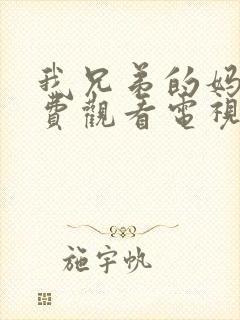 我兄弟的妈
費觀看電視
施宇帆